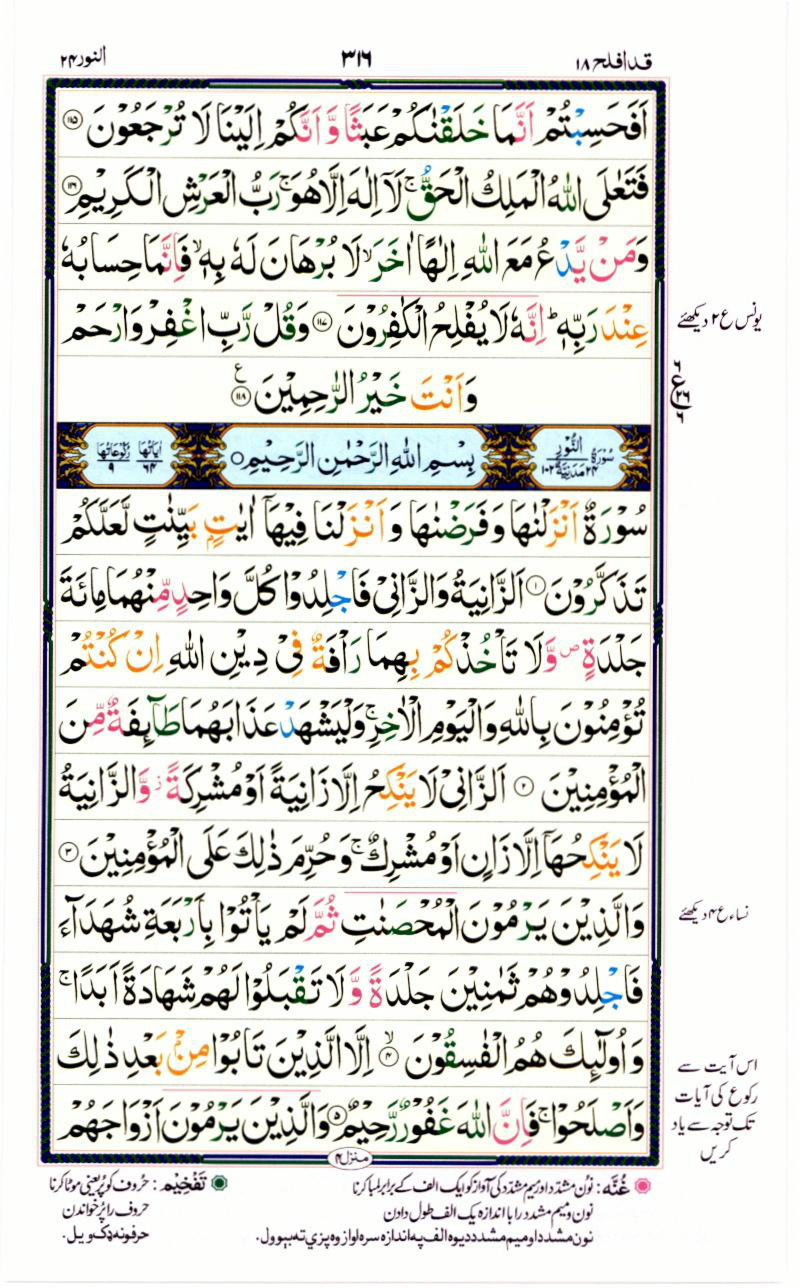 قد افلح ۱۸
۳۱۶
النور ۲۴
اَفَحَسِبْتُمْ اَنَّمَا خَلَقْنٰكُمْ عَبَثًا وَّ اَنَّكُمْ اِلَيْنَا لَا تُرْجَعُوْنَ ۝۱۱۵
فَتَعٰلَى اللّٰهُ الْمَلِكُ الْحَقُّ ۚ لَاۤ اِلٰهَ اِلَّا هُوَ ۚ رَبُّ الْعَرْشِ الْكَرِيْمِ ۝۱۱۶
وَمَنْ يَّدْعُ مَعَ اللّٰهِ اِلٰهًا اٰخَرَ ۙ لَا بُرْهَانَ لَهٗ بِهٖ ۙ فَاِنَّمَا حِسَابُهٗ
عِنْدَ رَبِّهٖ ؕ اِنَّهٗ لَا يُفْلِحُ الْكٰفِرُوْنَ ۝۱۱۷ وَقُلْ رَّبِّ اغْفِرْ وَارْحَمْ
یونس ع ۲ دیکھئے
وَاَنْتَ خَيْرُ الرّٰحِمِيْنَ ۝۱۱۸ ع
۶
ع ۲۶
۶
سُوْرَةُ النُّوْرِ ۲۴ مَدَنِيَّةٌ ۱۰۲
بِسْمِ اللّٰهِ الرَّحْمٰنِ الرَّحِيْمِ ۝
اٰيَاتُهَا ۶۴ رُكُوْعَاتُهَا ۹
سُوْرَةٌ اَنْزَلْنٰهَا وَفَرَضْنٰهَا وَاَنْزَلْنَا فِيْهَاۤ اٰيٰتٍۭ بَيِّنٰتٍ لَّعَلَّكُمْ
تَذَكَّرُوْنَ ۝۱ اَلزَّانِيَةُ وَالزَّانِيْ فَاجْلِدُوْا كُلَّ وَاحِدٍ مِّنْهُمَا مِائَةَ
جَلْدَةٍ ۪ وَّلَا تَاْخُذْكُمْ بِهِمَا رَاْفَةٌ فِيْ دِيْنِ اللّٰهِ اِنْ كُنْتُمْ
تُؤْمِنُوْنَ بِاللّٰهِ وَالْيَوْمِ الْاٰخِرِ ۚ وَلْيَشْهَدْ عَذَابَهُمَا طَآئِفَةٌ مِّنَ
الْمُؤْمِنِيْنَ ۝۲ اَلزَّانِيْ لَا يَنْكِحُ اِلَّا زَانِيَةً اَوْ مُشْرِكَةً ؗ وَّالزَّانِيَةُ
لَا يَنْكِحُهَاۤ اِلَّا زَانٍ اَوْ مُشْرِكٌ ۚ وَحُرِّمَ ذٰلِكَ عَلَى الْمُؤْمِنِيْنَ ۝۳
وَالَّذِيْنَ يَرْمُوْنَ الْمُحْصَنٰتِ ثُمَّ لَمْ يَاْتُوْا بِاَرْبَعَةِ شُهَدَآءَ
نساء ع ۴ دیکھئے
فَاجْلِدُوْهُمْ ثَمٰنِيْنَ جَلْدَةً وَّلَا تَقْبَلُوْا لَهُمْ شَهَادَةً اَبَدًا ۚ
وَاُولٰٓئِكَ هُمُ الْفٰسِقُوْنَ ۝۴ ۙ اِلَّا الَّذِيْنَ تَابُوْا مِنْۢ بَعْدِ ذٰلِكَ
وَاَصْلَحُوْا ۚ فَاِنَّ اللّٰهَ غَفُوْرٌ رَّحِيْمٌ ۝۵ وَالَّذِيْنَ يَرْمُوْنَ اَزْوَاجَهُمْ
اس آیت سے
رکوع کی آیات
تک توجہ سے یاد
کریں
منزل ۴
غُنَّه: نون مشدّد اور میم مشدّد کی آواز کو ایک الف کے برابر لمبا کرنا
نون و میم مشدد را با اندازه یک الف طول دادن
نون مشدد او میم مشدد د یوه الف په اندازه سره اواز وه پزې ته بېوول.
تَفْخِیْم: حروف کو پُر یعنی موٹا کرنا
حروف را پُر خواندن
حرفونه ډک ویل.